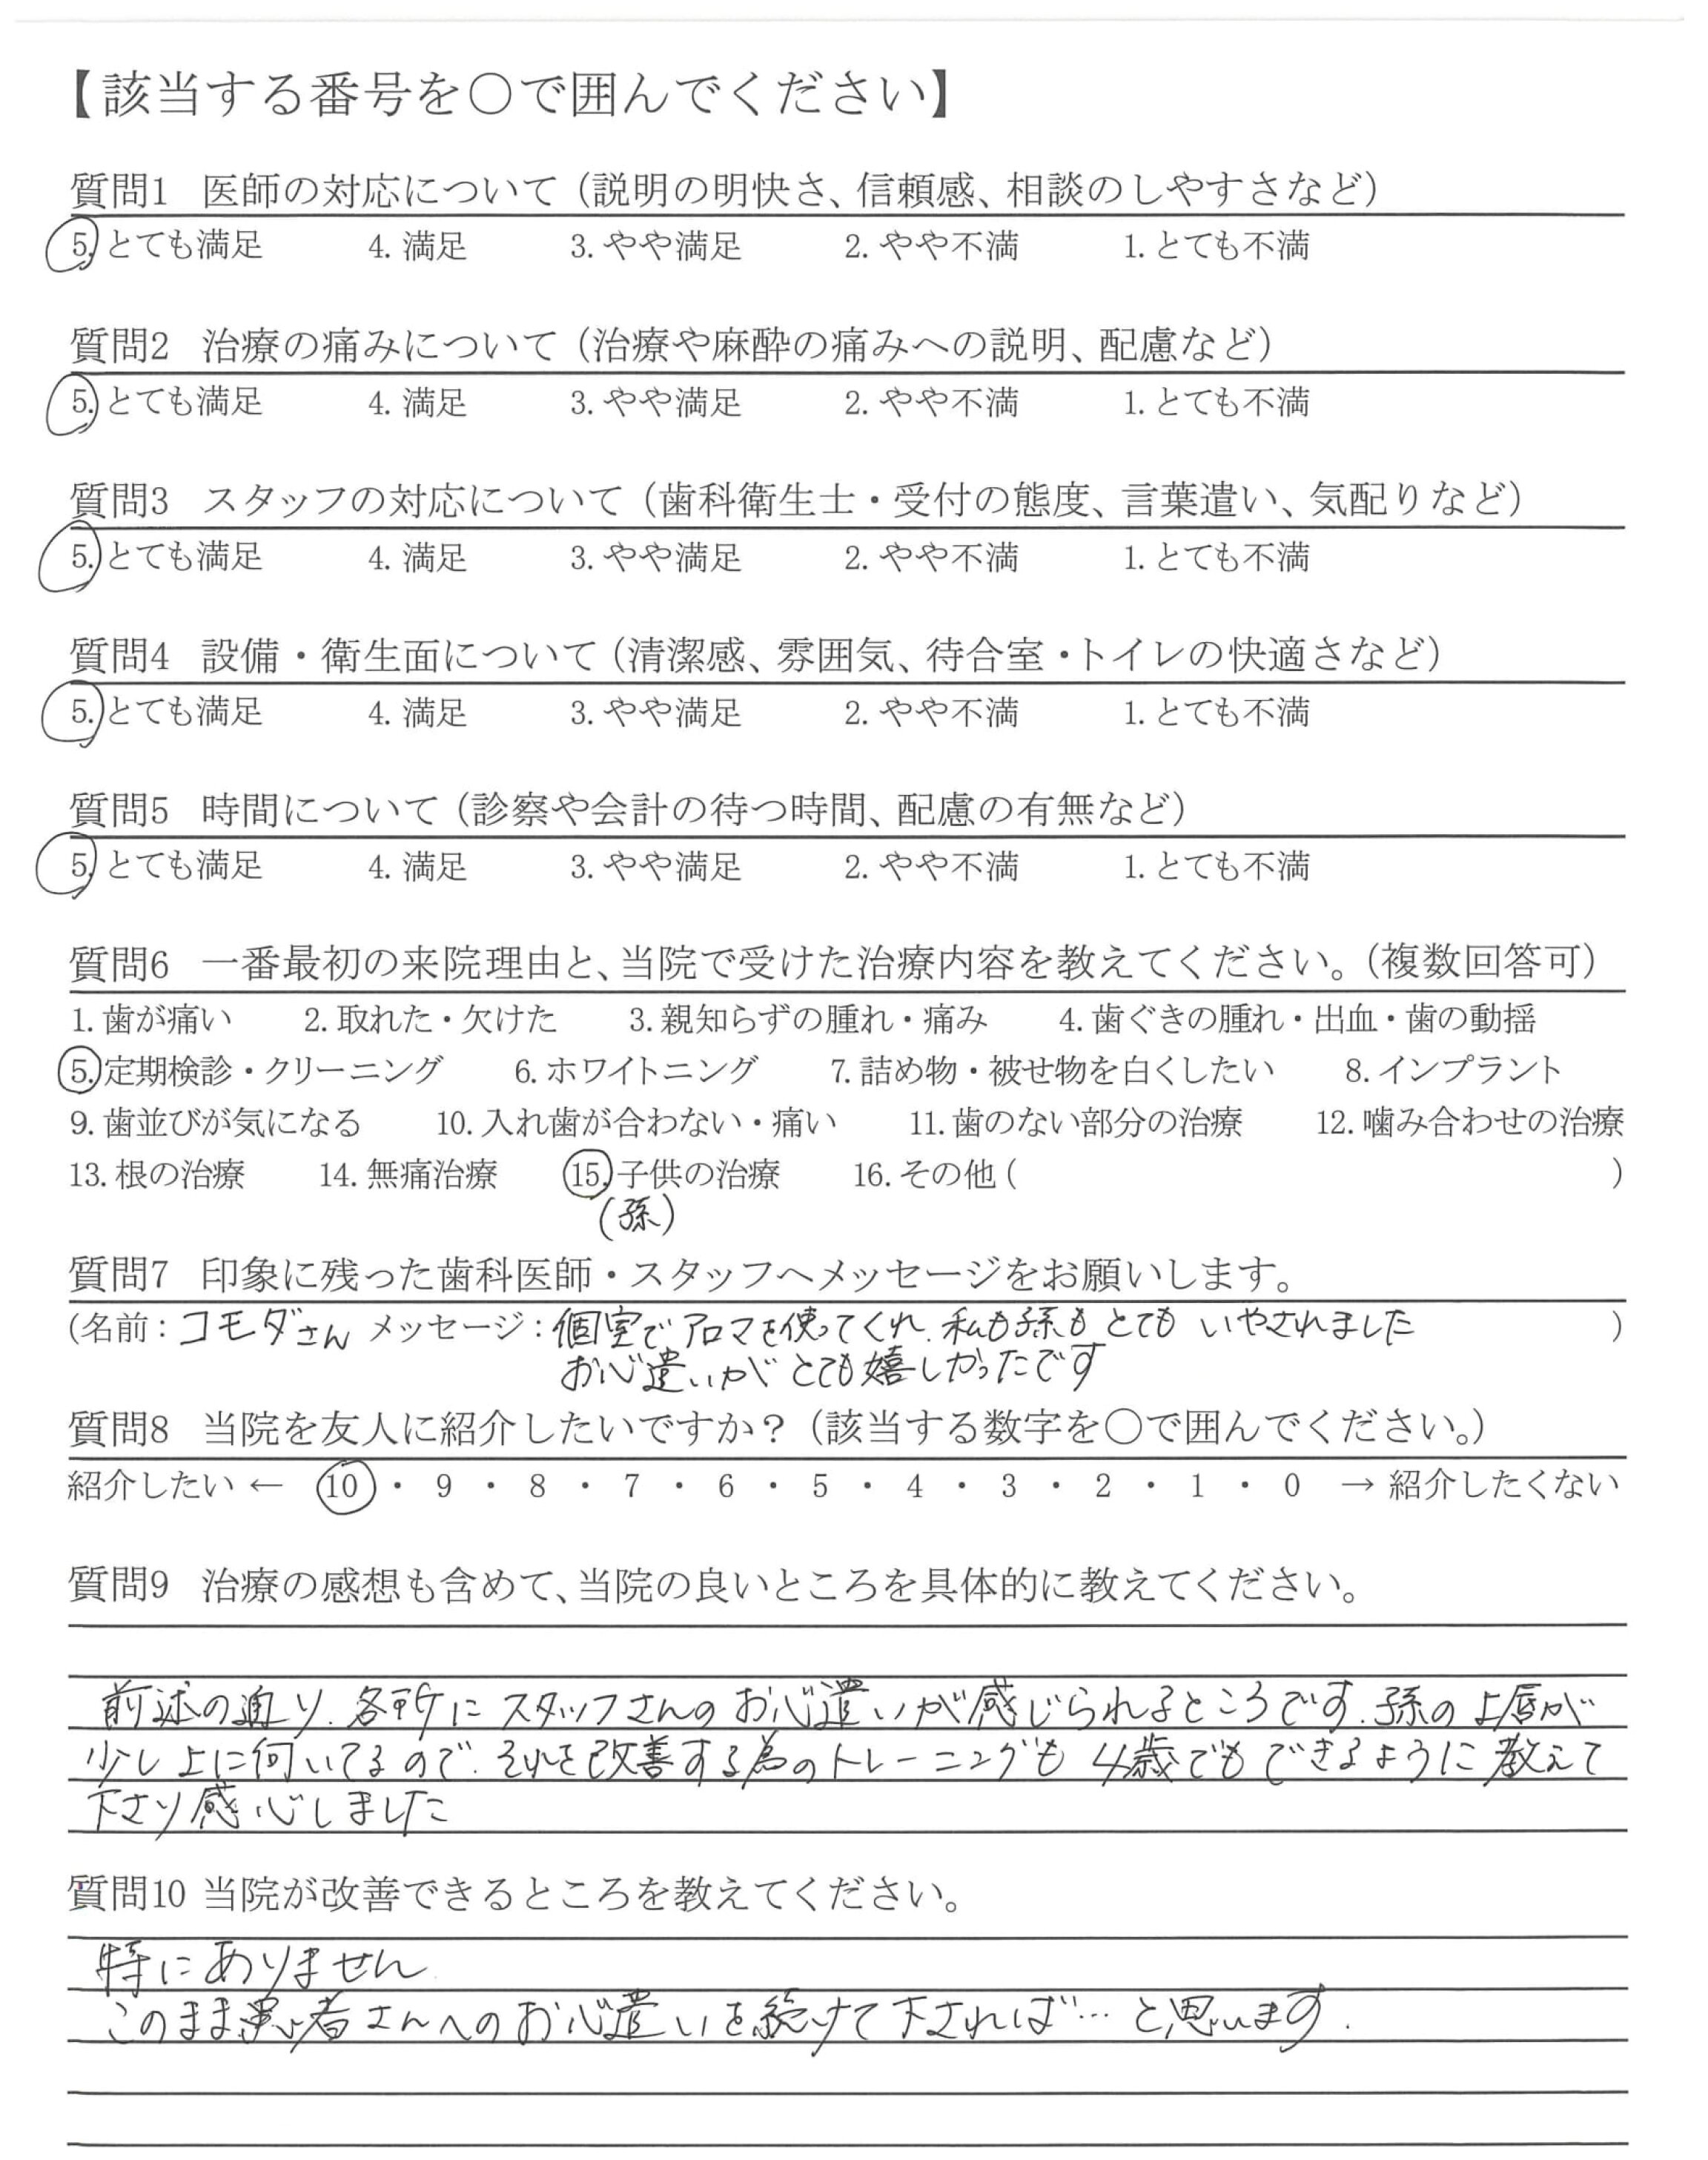 【該当する番号を○で囲んでください】
質問1 医師の対応について（説明の明快さ、信頼感、相談のしやすさなど）
5. とても満足 4. 満足 3. やや満足 2. やや不満 1. とても不満
質問2 治療の痛みについて（治療や麻酔の痛みへの説明、配慮など）
5. とても満足 4. 満足 3. やや満足 2. やや不満 1. とても不満
質問3 スタッフの対応について（歯科衛生士・受付の態度、言葉遣い、気配りなど）
5. とても満足 4. 満足 3. やや満足 2. やや不満 1. とても不満
質問4 設備・衛生面について（清潔感、雰囲気、待合室・トイレの快適さなど）
5. とても満足 4. 満足 3. やや満足 2. やや不満 1. とても不満
質問5 時間について（診察や会計の待つ時間、配慮の有無など）
5. とても満足 4. 満足 3. やや満足 2. やや不満 1. とても不満
質問6 一番最初の来院理由と、当院で受けた治療内容を教えてください。（複数回答可）
1. 歯が痛い 2. 取れた・欠けた 3. 親知らずの腫れ・痛み 4. 歯ぐきの腫れ・出血・歯の動揺
5. 定期検診・クリーニング 6. ホワイトニング 7. 詰め物・被せ物を白くしたい 8. インプラント
9. 歯並びが気になる 10. 入れ歯が合わない・痛い 11. 歯のない部分の治療 12. 噛み合わせの治療
13. 根の治療 14. 無痛治療 15. 子供の治療 16. その他（ ）
（孫）
質問7 印象に残った歯科医師・スタッフへメッセージをお願いします。
（名前：コモダさん メッセージ：個室でアロマを使ってくれ、私も孫もとてもいやされました ）
お心遣いがとても嬉しかったです
質問8 当院を友人に紹介したいですか？（該当する数字を○で囲んでください。）
紹介したい ← 10 ・ 9 ・ 8 ・ 7 ・ 6 ・ 5 ・ 4 ・ 3 ・ 2 ・ 1 ・ 0 → 紹介したくない
質問9 治療の感想も含めて、当院の良いところを具体的に教えてください。
前述の通り、各所にスタッフさんのお心遣いが感じられるところです。孫の上唇が
少し上に向いてるので、それを改善する為のトレーニングも4歳でもできるように教えて
下さり感心しました
質問10 当院が改善できるところを教えてください。
特にありません
このまま患者さんへのお心遣いを続けて下されば…と思います.